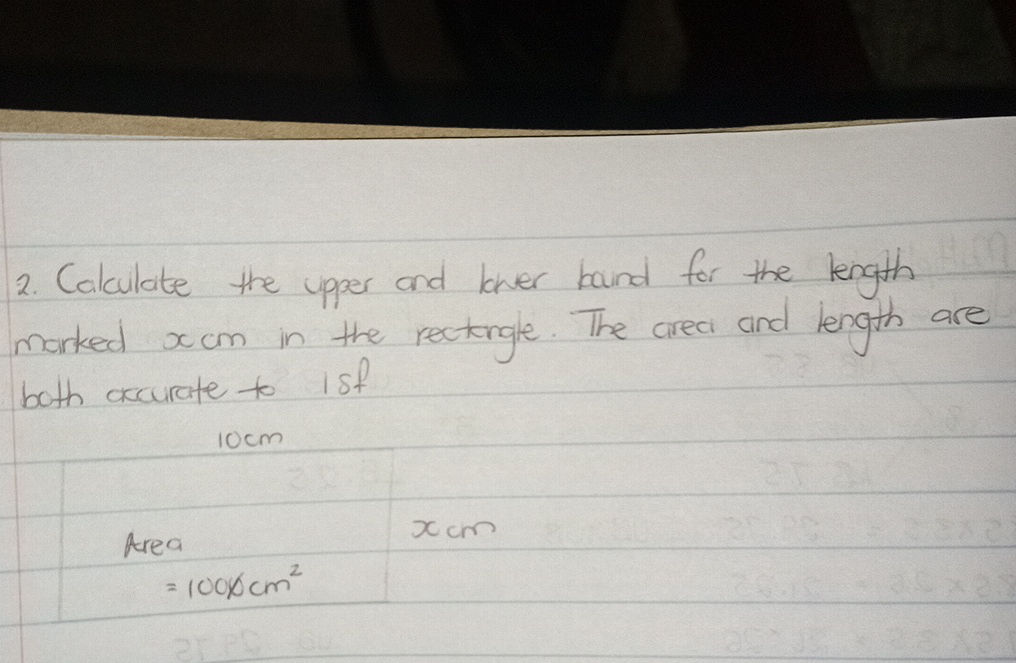 2. Calculate the upper and lower bound for the length
marked x cm in the rectangle. The area and length are
both accurate to 1sf
10cm
Area
x cm
= 100 cm²